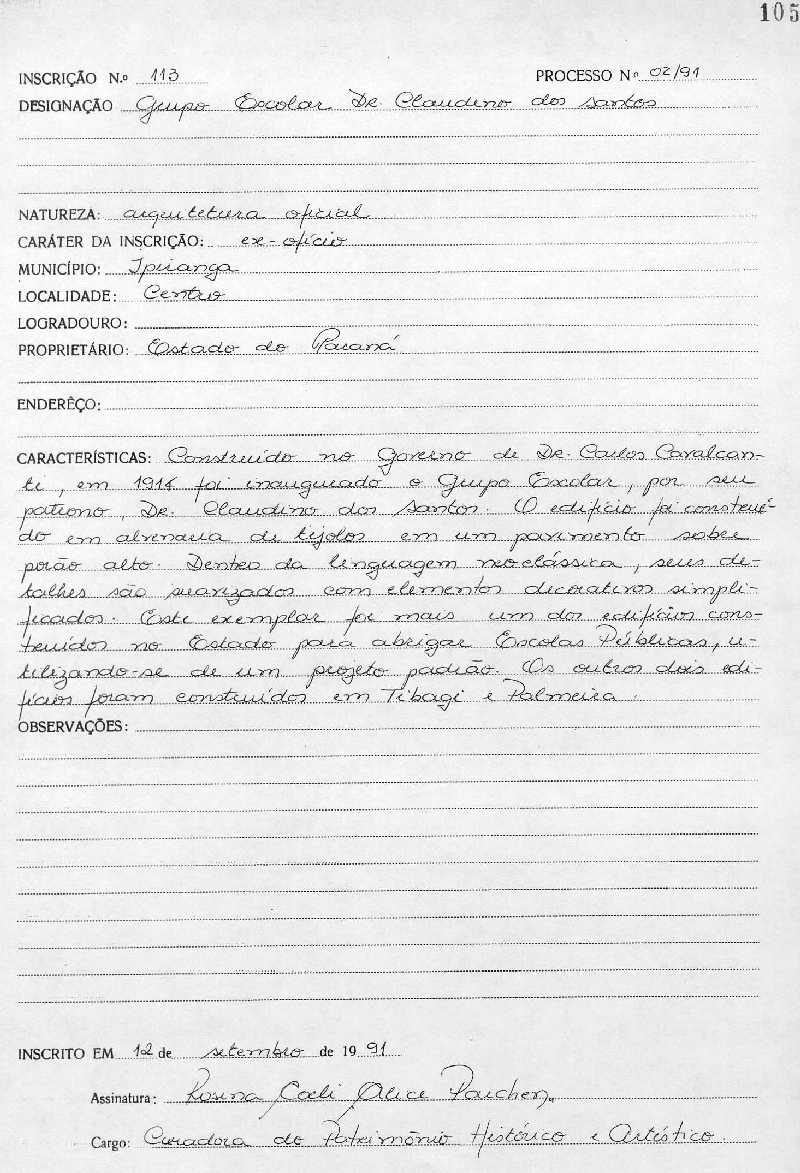 105
INSCRIÇÃO N.º 113 PROCESSO Nº 02/91
DESIGNAÇÃO Grupo Escolar Dr. Claudino dos Santos
NATUREZA: arquitetura oficial
CARÁTER DA INSCRIÇÃO: ex-ofício
MUNICÍPIO: Ipiranga
LOCALIDADE: Centro
LOGRADOURO:
PROPRIETÁRIO: Estado do Paraná
ENDERÊÇO:
CARACTERÍSTICAS: Construído no Governo de Dr. Carlos Cavalcan-
ti, em foi inaugurado o Grupo Escolar, por seu
patrono, Dr. Claudino dos Santos. O edifício foi construí-
do em alvenaria de tijolos em um pavimento sobre
porão alto. Dentro da linguagem neoclássica, seus de-
talhes são suavizados com elementos decorativos simpli-
ficados. Este exemplar foi mais um dos edifícios cons-
truídos no Estado para abrigar Escolas Públicas, u-
tilizando-se de um projeto padrão. Os outros dois edi-
fícios foram construídos em Tibagi e Palmeira.
OBSERVAÇÕES:
INSCRITO EM 12 de setembro de 1991
Assinatura: Rosina Coeli Alice Parchen
Cargo: Curadora do Patrimônio Histórico e Artístico.